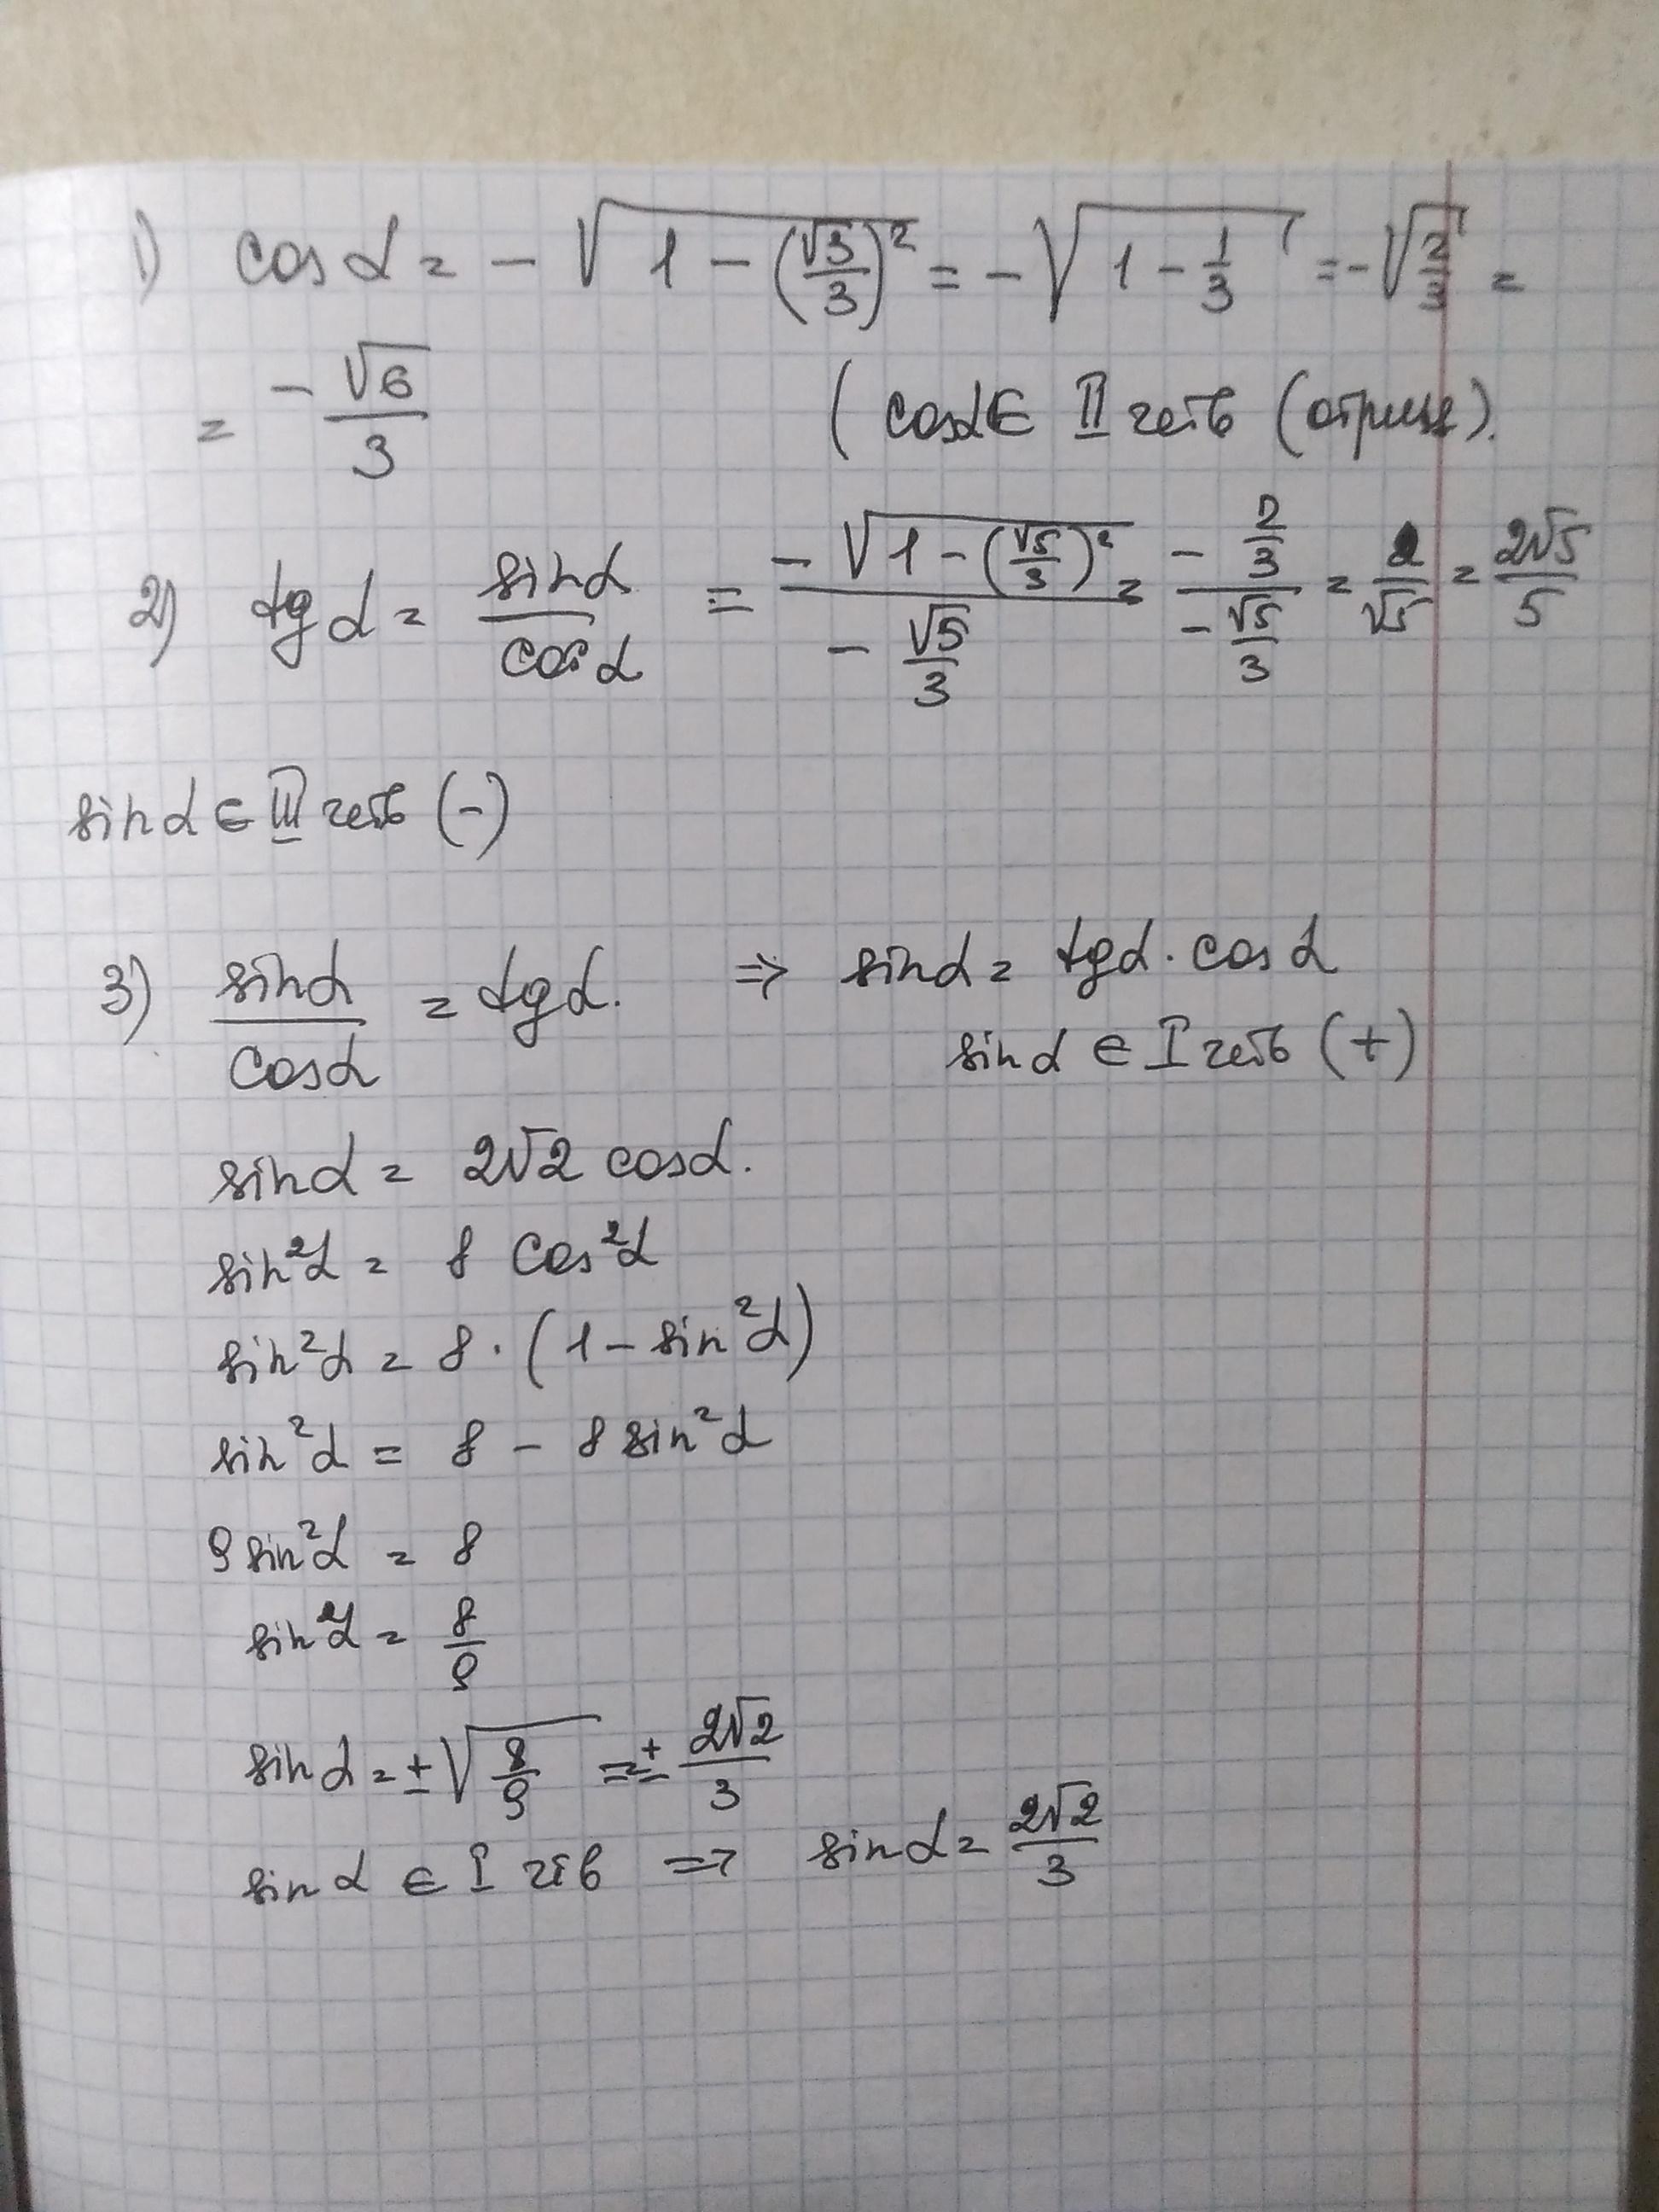 1) cos α = - √(1 - (√3/3)²) = - √(1 - 1/3) = - √(2/3) =
= -√6/3 (cos α ∈ II четв (отриц).
2) tg α = sin α / cos α = -√(1 - (√5/3)²) / (-√5/3) = (-2/3) / (-√5/3) = 2/√5 = 2√5/5
sin α ∈ III четв (-)
3) sin α / cos α = tg α. ⇒ sin α = tg α · cos α
sin α ∈ I четв (+)
sin α = 2√2 cos α.
sin²α = 8 cos²α
sin²α = 8 · (1 - sin²α)
sin²α = 8 - 8 sin²α
9 sin²α = 8
sin²α = 8/9
sin α = ± √(8/9) = ± 2√2/3
sin α ∈ I чтв ⇒ sin α = 2√2/3